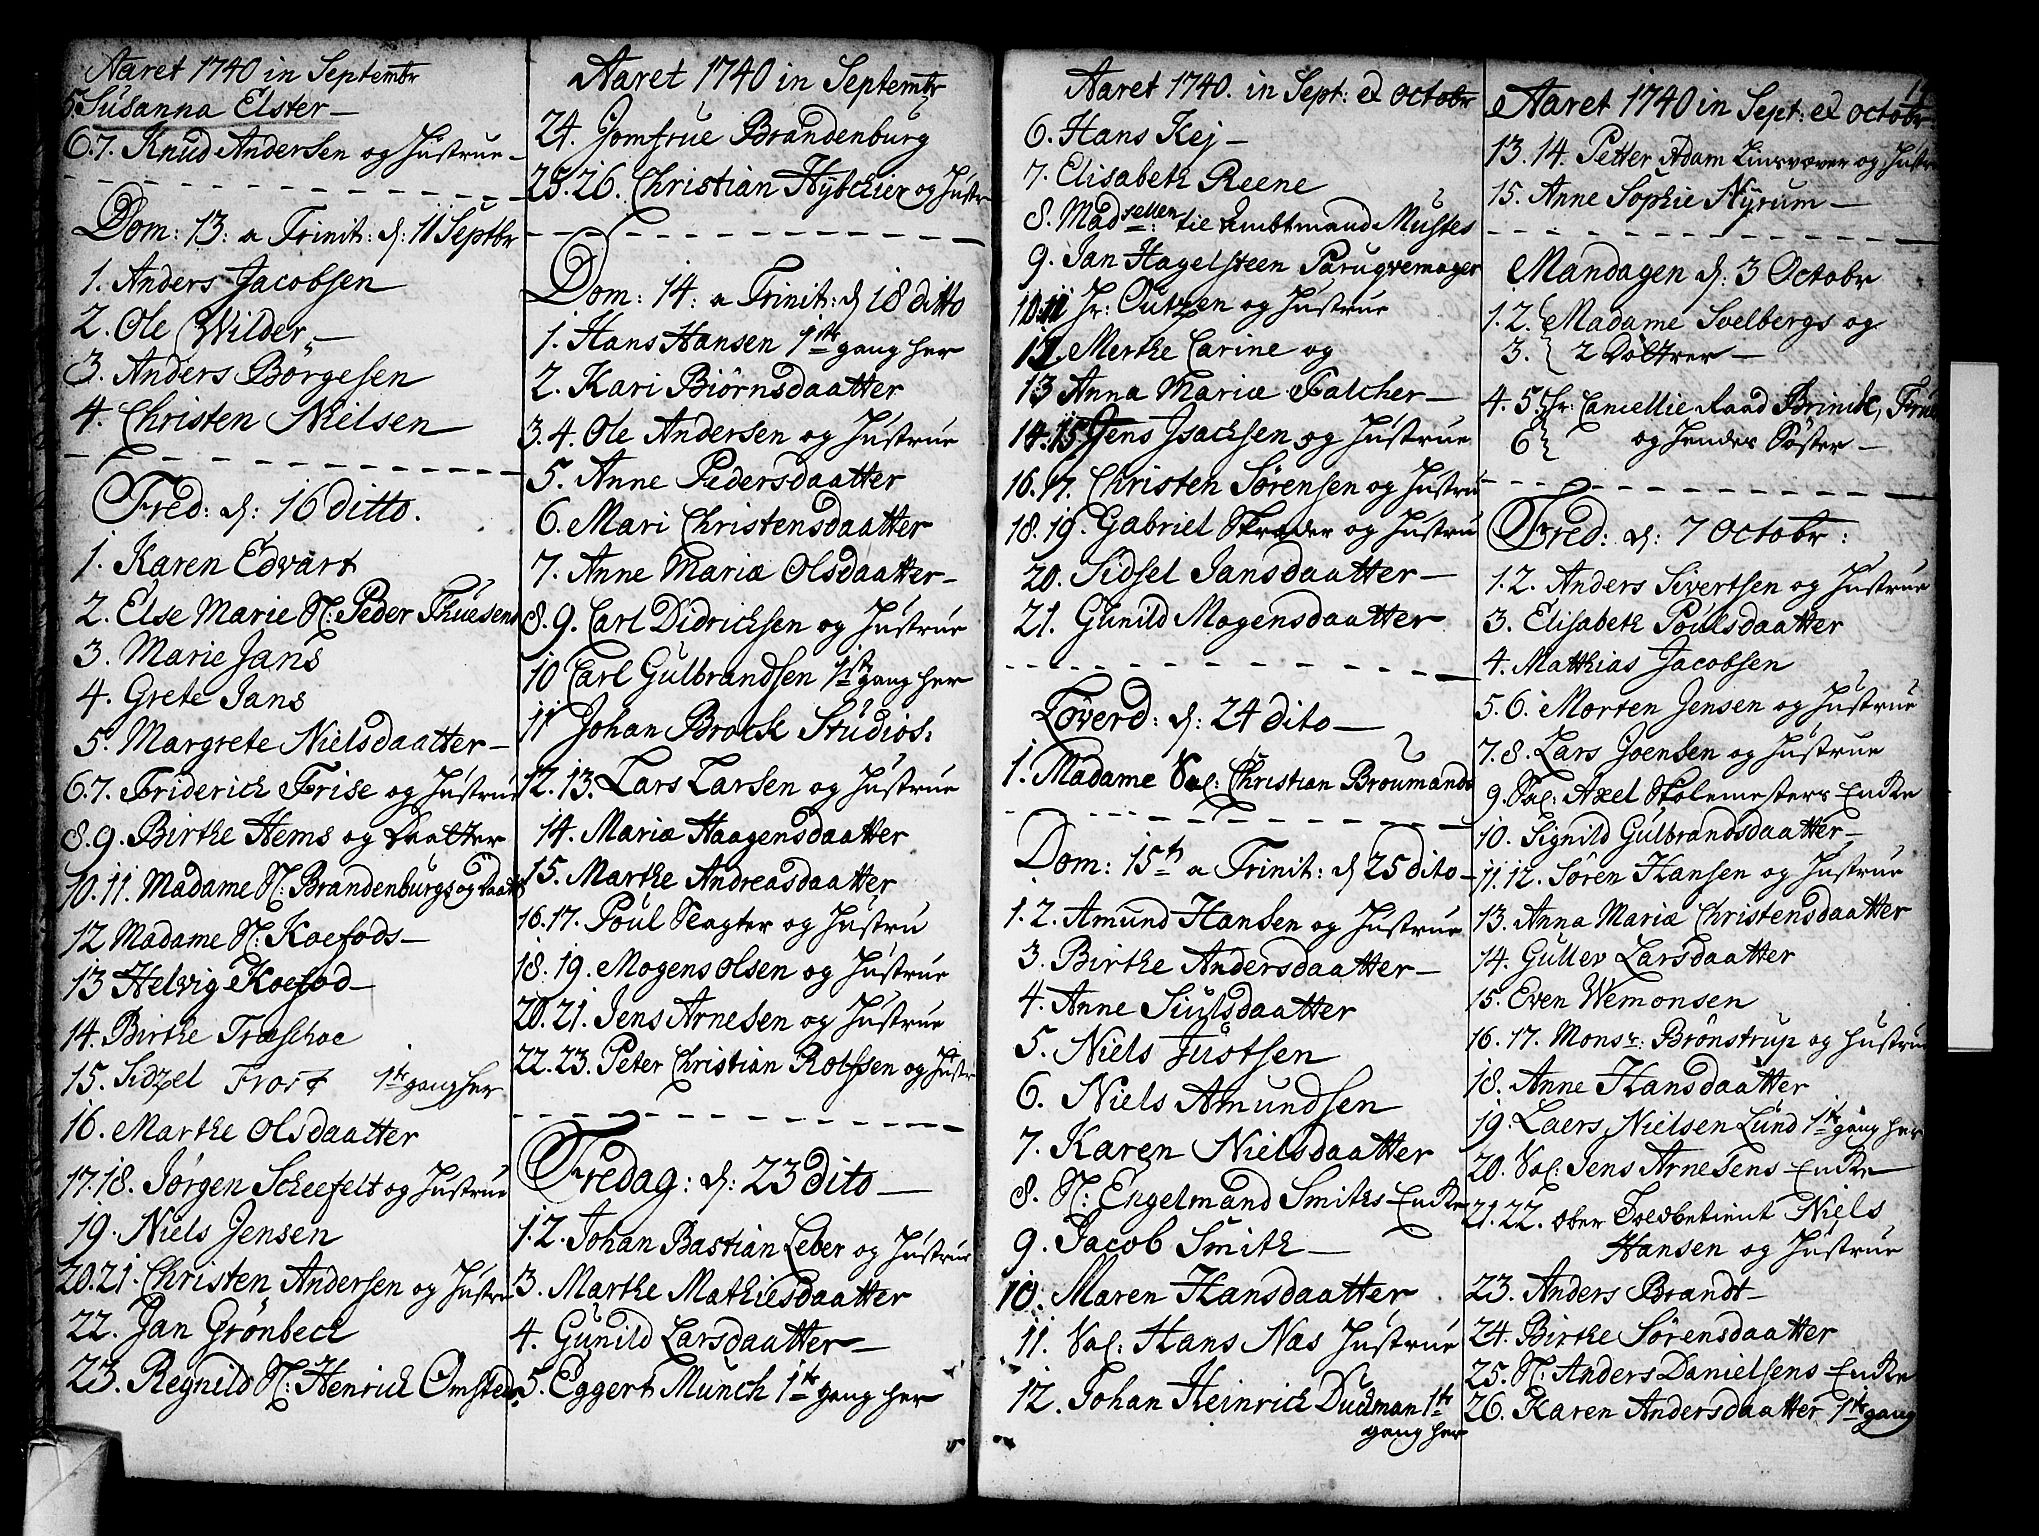 Aaret 1740 in Septembr
5. Susanna Elster
6. 7. Knud Andersen og Hustrue
Dom: 13: a Trinit: d: 11 Septbr
1. Anders Jacobsen
2. Ole Wilder
3. Anders Börgesen
4. Christen Nielsen
Fred: d: 16 ditto.
1. Karen Edvart
2. Else Marie Sl: Peder Thuesens
3. Marie Jans
4. Grete Jans
5. Margrete Nielsdaatter
6. 7. Friderich Frise og Hustrue
8. 9. Birthe Hems og Daatter
10. 11. Madame Sl: Brandenburgs og Daatter
12 Madame Sl: Koefods
13 Helvig Koefod
14. Birthe Træschoe
15. Sidzel Frost 1ste gang her
16. Marthe Olsdaatter
17. 18. Jørgen Scheefelt og Hustrue
19. Niels Jensen
20. 21. Christen Andersen og Hustru
22. Jan Grönbech
23. Regnild Sl: Henrich Omsteds
Aaret 1740 in Septembr
24. Jomfrue Brandenburg
25. 26. Christian Hybchier og Hustr
Dom: 14: a Trinit: d 18 ditto
1. Hans Hansen 1ste gang her
2. Kari Biörnsdaatter
3. 4. Ole Andersen og Hustrue
5. Anne Pedersdaatter
6. Mari Christensdaatter
7. Anne Maria Olsdaatter
8. 9. Carl Didrichsen og Hustrue
10 Carl Gulbrandsen 1ste gang her
11 Johan Brock Studios:
12. 13. Lars Larsen og Hustrue
14. Maria Haagensdaatter
15. Marthe Andreasdaatter
16. 17. Poul Slagter og Hustru
18. 19. Mogens Olsen og Hustrue
20. 21. Jens Arnesen og Hustrue
22. 23. Peter Christian Rolfsen og Hustr
Fredag: d: 23 dito
1. 2. Johan Bastian Leber og Hustrue
3. Marthe Mathiesdaatter
4. Gunild Larsdaatter
5. Eggert Munch 1ste gang her
Aaret 1740. in Sept: et Octobr
6. Hans Kej
7. Elisabeth Reene
8. Madsellen: til Ambtmand Mustes
9. Jan Hagelsteen Parugvemager
10. 11 Hr: Outzen og Hustrue
12. Merthe Carine og
13 Anna Maria Falcher
14. 15 Jens Isachsen og Hustrue
16. 17. Christen Sørensen og Hustru
18. 19. Gabriel Skræder og Hustru
20. Sidsel Jansdaatter
21. Gunild Mogensdaatter
Löverd: d: 24 dito
1. Madame Sal: Christian Broumands
Dom: 15de a Trinit: d 25 dito
1. 2. Amund Hansen og Hustrue
3. Birthe Andersdaatter
4. Anne Siulsdaatter
5. Niels Justsen
6. Niels Amundsen
7. Karen Nielsdaatter
8. Sl: Engelmand Smiths Encke
9. Jacob Smith
10. Maren Hansdaatter
11. Sal: Hans Næs Hustrue
12. Johan Heinrich Dudman 1ste
gang her
Aaret 1740 in Sept: et Octobr
13. 14. Petter Adam Linsvæver og Hustr
15. Anne Sophie Nyrum
Mandagen d: 3 Octobr
1. 2. Madame Svelbergs og
3. 2 Döttrer
4. 5. Hr. Cancellie Raad Brinck, Frue
6 og Hendes Söster
Fred: d: 7 Octobr:
1. 2. Anders Sivertsen og Hustrue
3. Elisabeth Poulsdaatter
4. Matthias Jacobsen
5. 6. Morten Jensen og Hustrue
7. 8. Lars Joensen og Hustrue
9. Sal: Axel Skolemesters Encke
10. Signild Gulbrandsdaatter
11. 12. Søren Hansen og Hustrue
13. Anna Maria Christensdaatter
14. Gullev Larsdaatter
15. Even Wemonsen
16. 17. Monsr: Brönstrup og Hustrue
18. Anne Hansdaatter
19. Laers Nielsen Lund 1ste gang her
20. Sal: Jens Arnesens Encke
21. 22. Ober Toldbetient Niels
Hansen og Hustrue
23. Anders Brandt
24. Birthe Sörensdaatter
25. Sl: Anders Danielsens Encke
26. Karen Andersdaatter 1ste gang